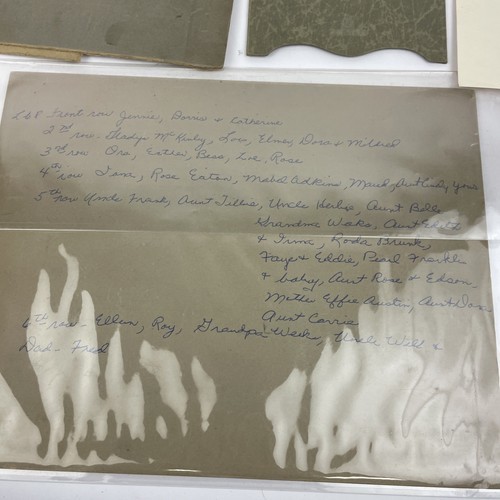 L & R Front row Jennie, Dorris & Catherine
2nd row - Gladys McKinley, Lois, Elmer, Dora & Mildred
3rd row Ora, Eathen, Bess, Zoe, Rose
4th row Irene, Rose Eaton, Mabel Adkins, Maud, Aunt
5th row Uncle Frank, Aunt Tillie, Uncle Herbie, Aunt Belle
Grandma Weeks, Aunt
& Irma, Roda Brunk,
Faye & Eddie, Pearl Franklin
& baby, Aunt Rose & Edson,
Mother Effie Austin, Aunt
Aunt Carrie
6th row - Ellen, Roy, Grandpa Weeks, Uncle Will &
Dad - Fred